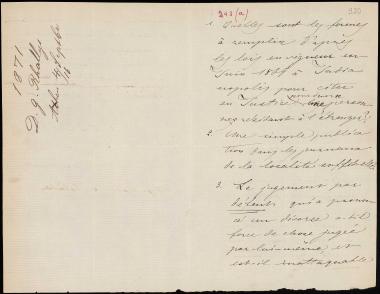 243 (a)
320
1. Quelles sont les formes
à remplir d'après
les lois en vigueur en
Juin 1869 à India
nopolis pour citer
en Justice une person
ne résidant à l'étranger?
2. Une simple publica
tion dans les journaux
de la localité suffit-elle
3. Le jugement par
défaut qui a pronon
cé un divorce a-t-il
force de chose jugée
par lui-même et
est-il inattaquable
1871
D. J. Rhallys